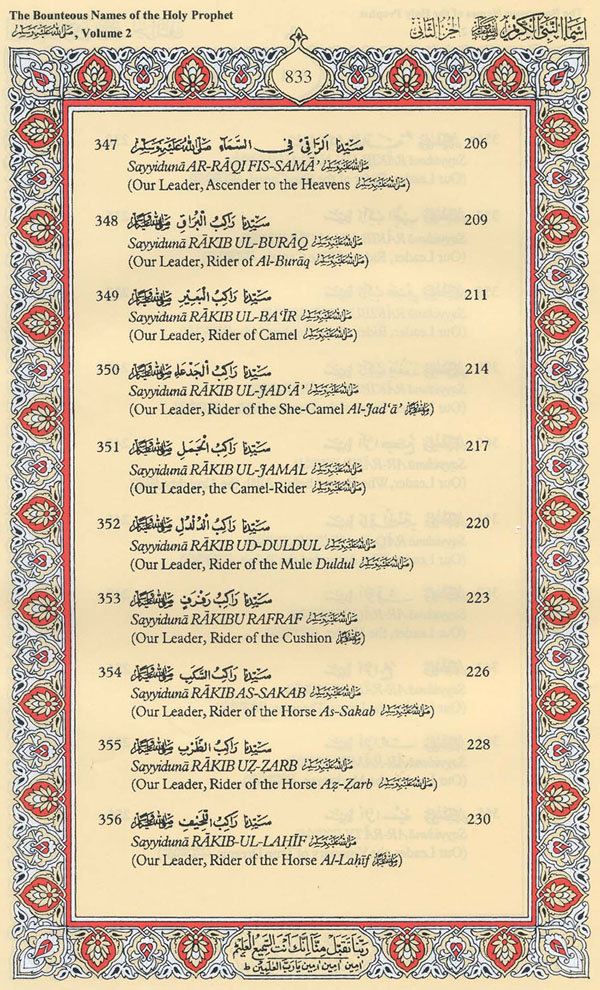 The Bounteous Names of the Holy Prophet
ﷺ, Volume 2
اسماء النبي الكريم ﷺ الجزء الثاني
833
347 سَيِّدُنَا الرَّاقِي فِي السَّمَاءِ ﷺ 206
Sayyidunā AR-RĀQI FIS-SAMĀ’ ﷺ
(Our Leader, Ascender to the Heavens ﷺ)
348 سَيِّدُنَا رَاكِبُ الْبُرَاقِ ﷺ 209
Sayyidunā RĀKIB UL-BURĀQ ﷺ
(Our Leader, Rider of Al-Burāq ﷺ)
349 سَيِّدُنَا رَاكِبُ الْبَعِيرِ ﷺ 211
Sayyidunā RĀKIB UL-BA‘ĪR ﷺ
(Our Leader, Rider of Camel ﷺ)
350 سَيِّدُنَا رَاكِبُ الْجَدْعَاءِ ﷺ 214
Sayyidunā RĀKIB UL-JAD‘Ā’ ﷺ
(Our Leader, Rider of the She-Camel Al-Jad‘ā’ ﷺ)
351 سَيِّدُنَا رَاكِبُ الْجَمَلِ ﷺ 217
Sayyidunā RĀKIB UL-JAMAL ﷺ
(Our Leader, the Camel-Rider ﷺ)
352 سَيِّدُنَا رَاكِبُ الدُّلْدُلِ ﷺ 220
Sayyidunā RĀKIB UD-DULDUL ﷺ
(Our Leader, Rider of the Mule Duldul ﷺ)
353 سَيِّدُنَا رَاكِبُ رَفْرَفٍ ﷺ 223
Sayyidunā RĀKIBU RAFRAF ﷺ
(Our Leader, Rider of the Cushion ﷺ)
354 سَيِّدُنَا رَاكِبُ السَّكَبِ ﷺ 226
Sayyidunā RĀKIB AS-SAKAB ﷺ
(Our Leader, Rider of the Horse As-Sakab ﷺ)
355 سَيِّدُنَا رَاكِبُ الظَّرْبِ ﷺ 228
Sayyidunā RĀKIB UẒ-ẒARB ﷺ
(Our Leader, Rider of the Horse Aẓ-Ẓarb ﷺ)
356 سَيِّدُنَا رَاكِبُ اللَّحِيفِ ﷺ 230
Sayyidunā RĀKIB-UL-LAḤĪF ﷺ
(Our Leader, Rider of the Horse Al-Laḥīf ﷺ)
ربنا تقبل منا انك انت السميع العليم
امين امين امين يا رب العلمين ط